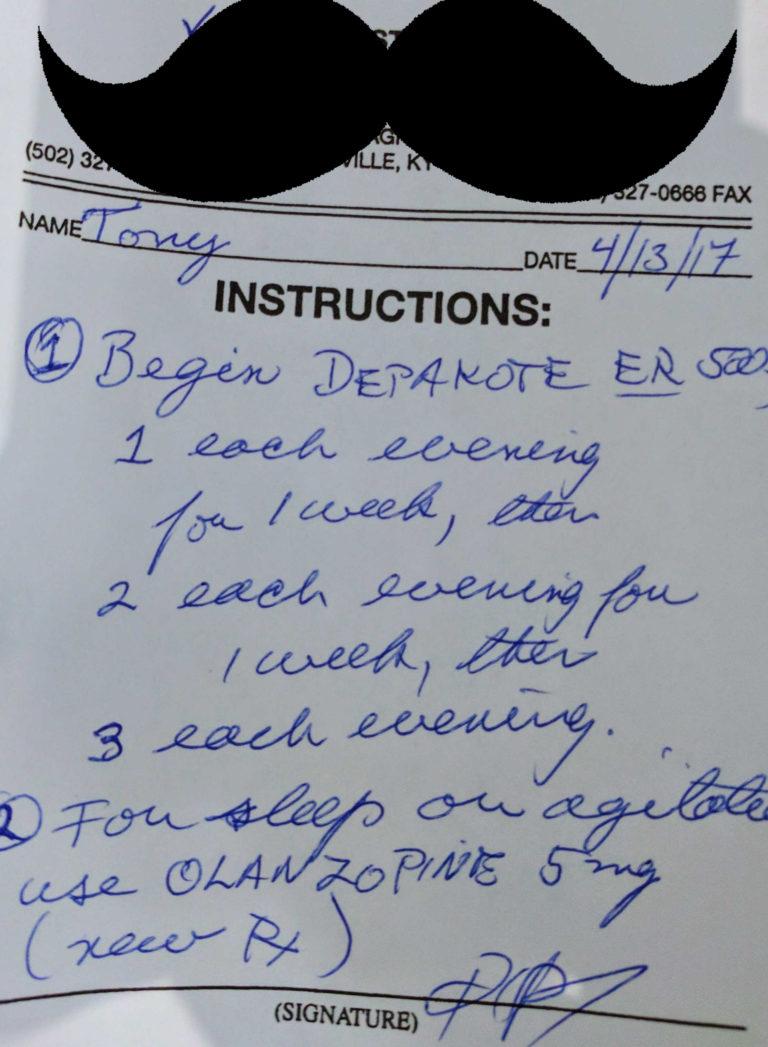 (502) 327
VILLE, KY
327-0666 FAX
NAME Tony DATE 4/13/17
INSTRUCTIONS:
① Begin DEPAKOTE ER 500
1 each evening
for 1 week, then
2 each evening for
1 week, then
3 each evening.
② For sleep or agitatio
use OLANZOPINE 5 mg
(new Rx)
(SIGNATURE)